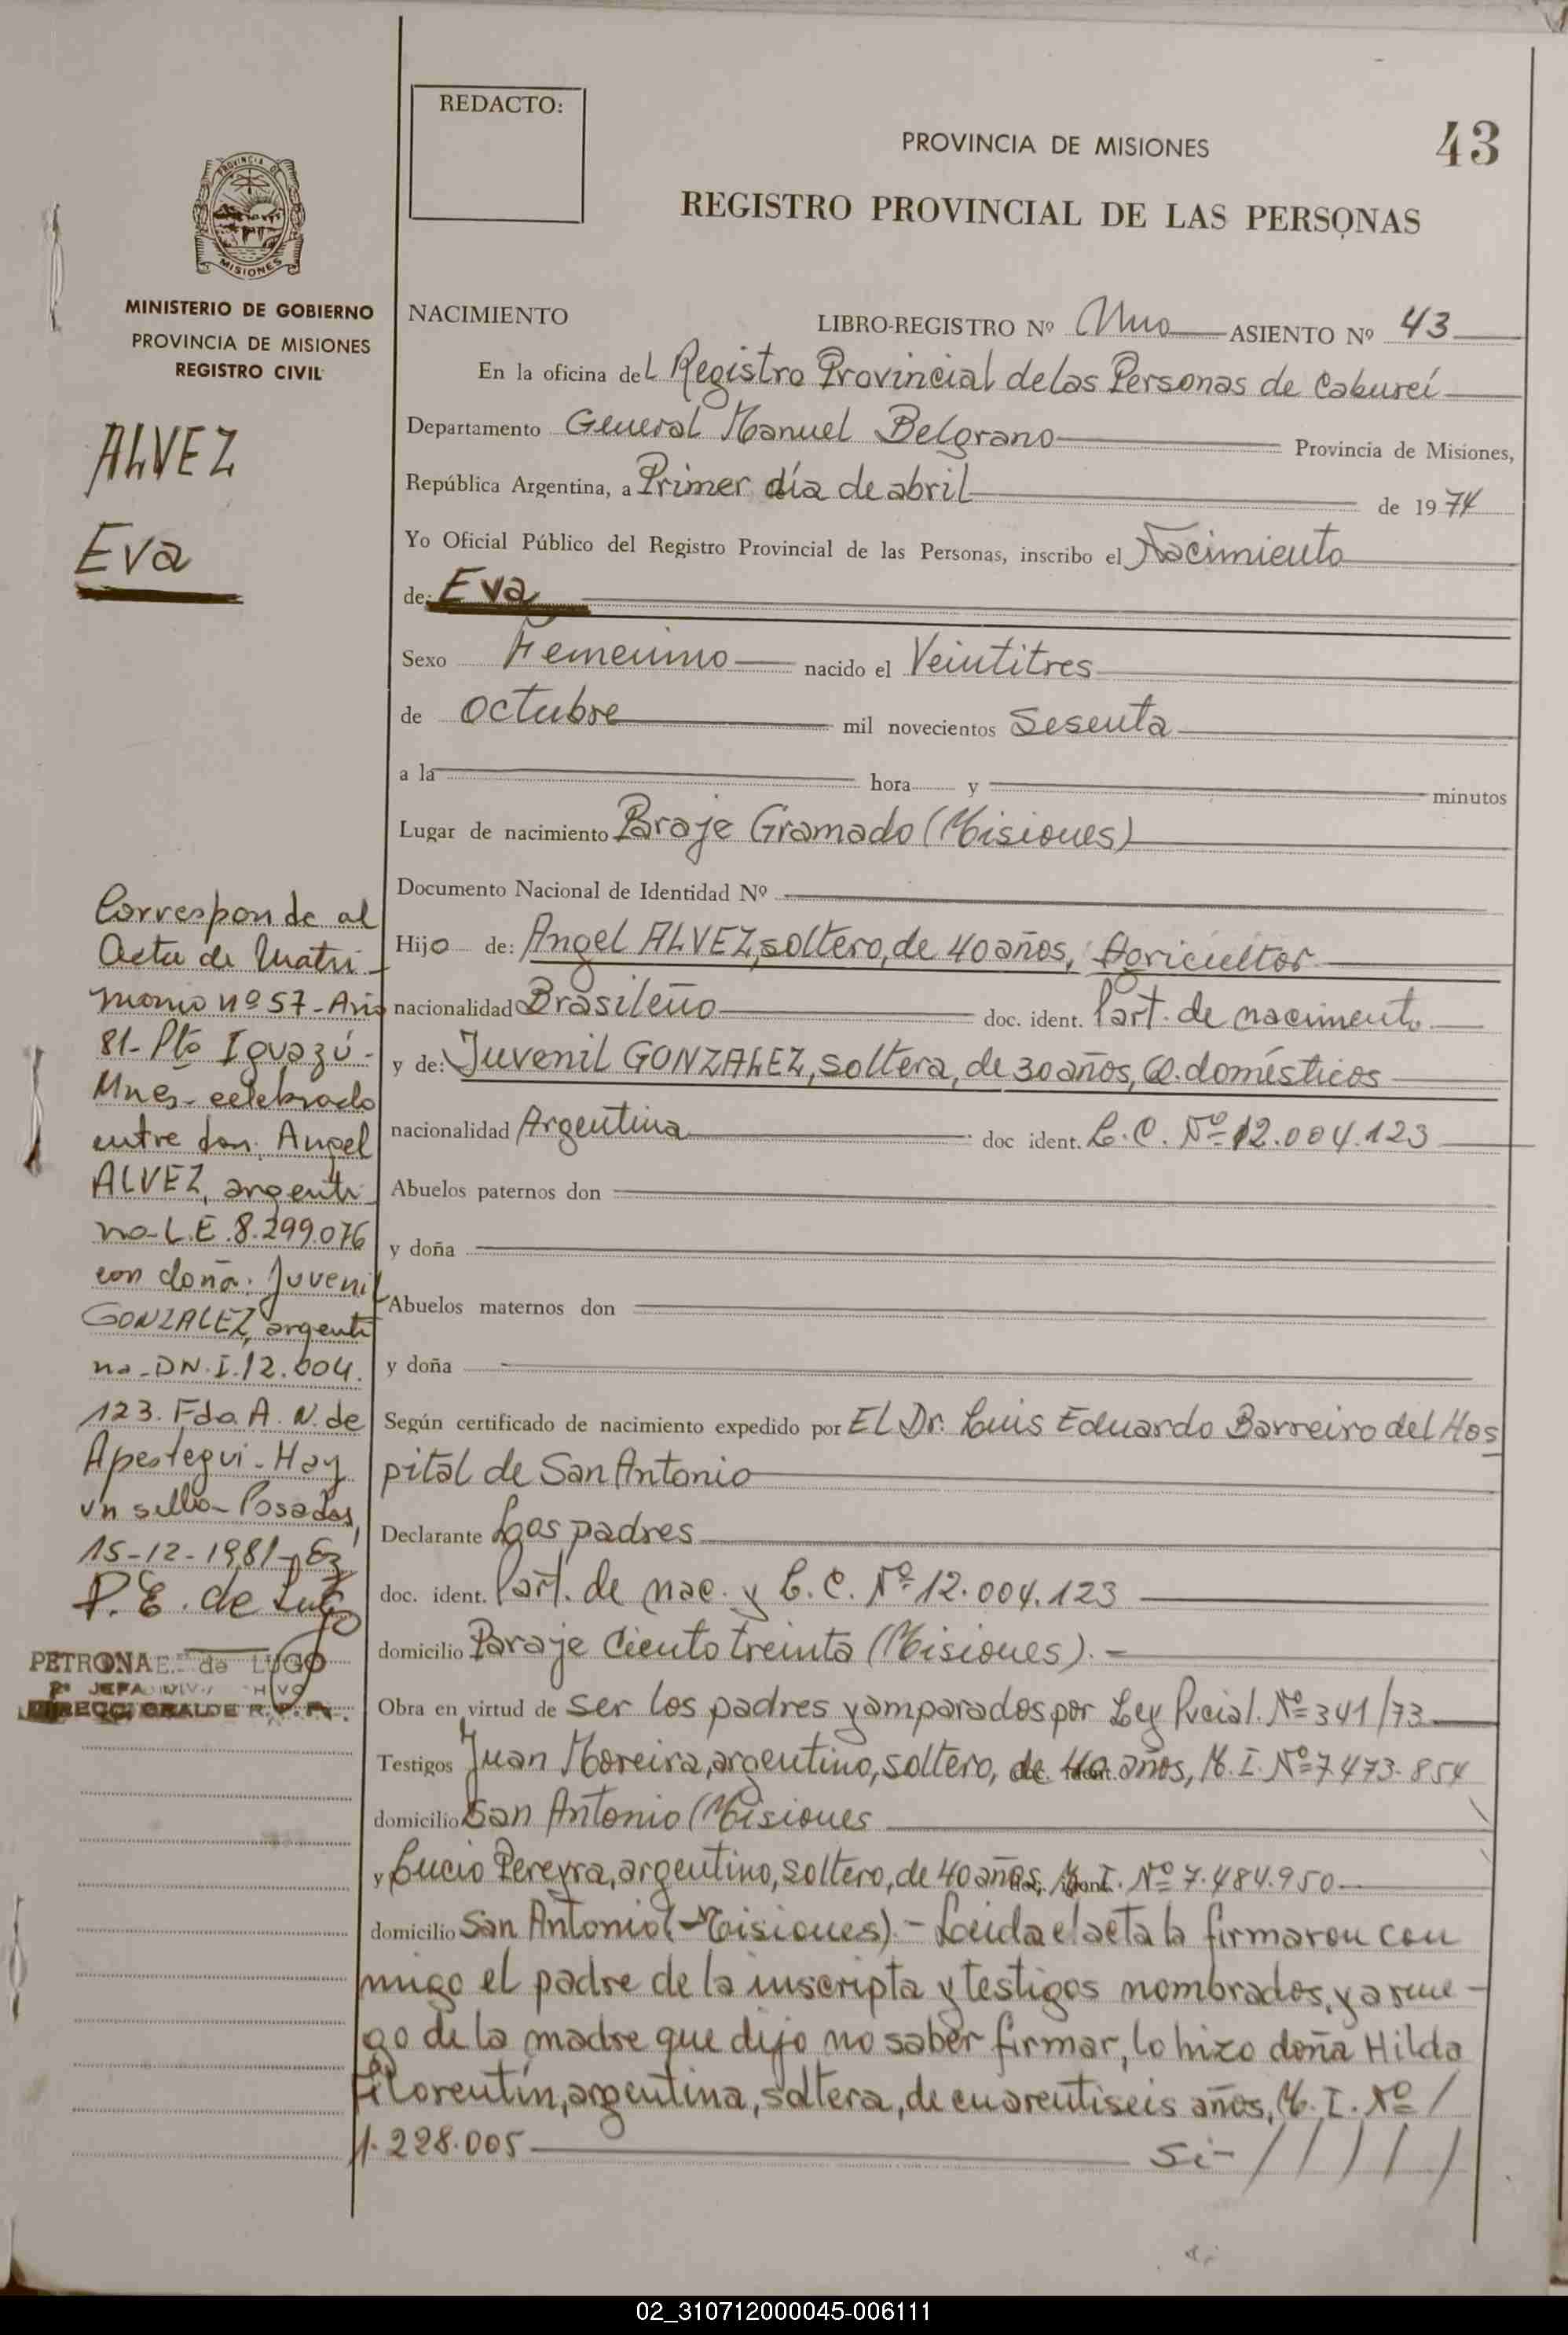 REDACTO:
PROVINCIA DE MISIONES
43
REGISTRO PROVINCIAL DE LAS PERSONAS
PROVINCIA
MISIONES
MINISTERIO DE GOBIERNO
PROVINCIA DE MISIONES
REGISTRO CIVIL
ALVEZ
Eva
Corresponde al
Acta de Matri-
monio nº 57-Año
81-Pto Iguazú-
Mnes-celebrado
entre don. Angel
ALVEZ, argenti-
no-L.E.8.299.076
con doña. Juvenil
GONZALEZ, argenti
na-DN.I.12.004.
123. Fdo. A. N. de
Apestegui-Hay
un sello-Posadas,
15-12-1981-
P.E. de Lugo
PETRONA E. de LUGO
2ª JEFA DIV. 
DIRECC. GRAL DE R.P.P.
NACIMIENTO LIBRO-REGISTRO Nº Uno ASIENTO Nº 43
En la oficina del Registro Provincial de las Personas de Caburei
Departamento General Manuel Belgrano Provincia de Misiones,
República Argentina, a Primer día de abril de 1974
Yo Oficial Público del Registro Provincial de las Personas, inscribo el Nacimiento
de: Eva
Sexo Femenino nacido el Veintitres
de octubre mil novecientos Sesenta
a la hora y minutos
Lugar de nacimiento Paraje Gramado (Misiones)
Documento Nacional de Identidad Nº
Hijo de: Angel ALVEZ, soltero, de 40 años, Agricultor
nacionalidad Brasileño doc. ident. Part. de nacimiento
y de: Juvenil GONZALEZ, soltera, de 30 años, Q. domésticos
nacionalidad Argentina doc ident. L.C. Nº 12.004.123
Abuelos paternos don
y doña
Abuelos maternos don
y doña
Según certificado de nacimiento expedido por El Dr. Luis Eduardo Barreiro del Hos
pital de San Antonio
Declarante Los padres
doc. ident. Part. de nac. y L.C. Nº 12.004.123
domicilio Paraje Ciento treinta (Misiones).-
Obra en virtud de ser los padres y amparados por Ley Pcial. Nº 341/73
Testigos Juan Moreira, argentino, soltero, de 40 años, M.I. Nº 7.473.854
domicilio San Antonio (Misiones
y Lucio Pereyra, argentino, soltero, de 40 años, M.I. Nº 7.484.950
domicilio San Antonio (Misiones).- Leida el acta la firmaron con
migo el padre de la inscripta y testigos nombrados, y a rue-
go de la madre que dijo no saber firmar, lo hizo doña Hilda
Florentín, argentina, soltera, de cuarentiseis años, M.I. Nº /
1.228.005 si- / / / / /
02_310712000045-006111